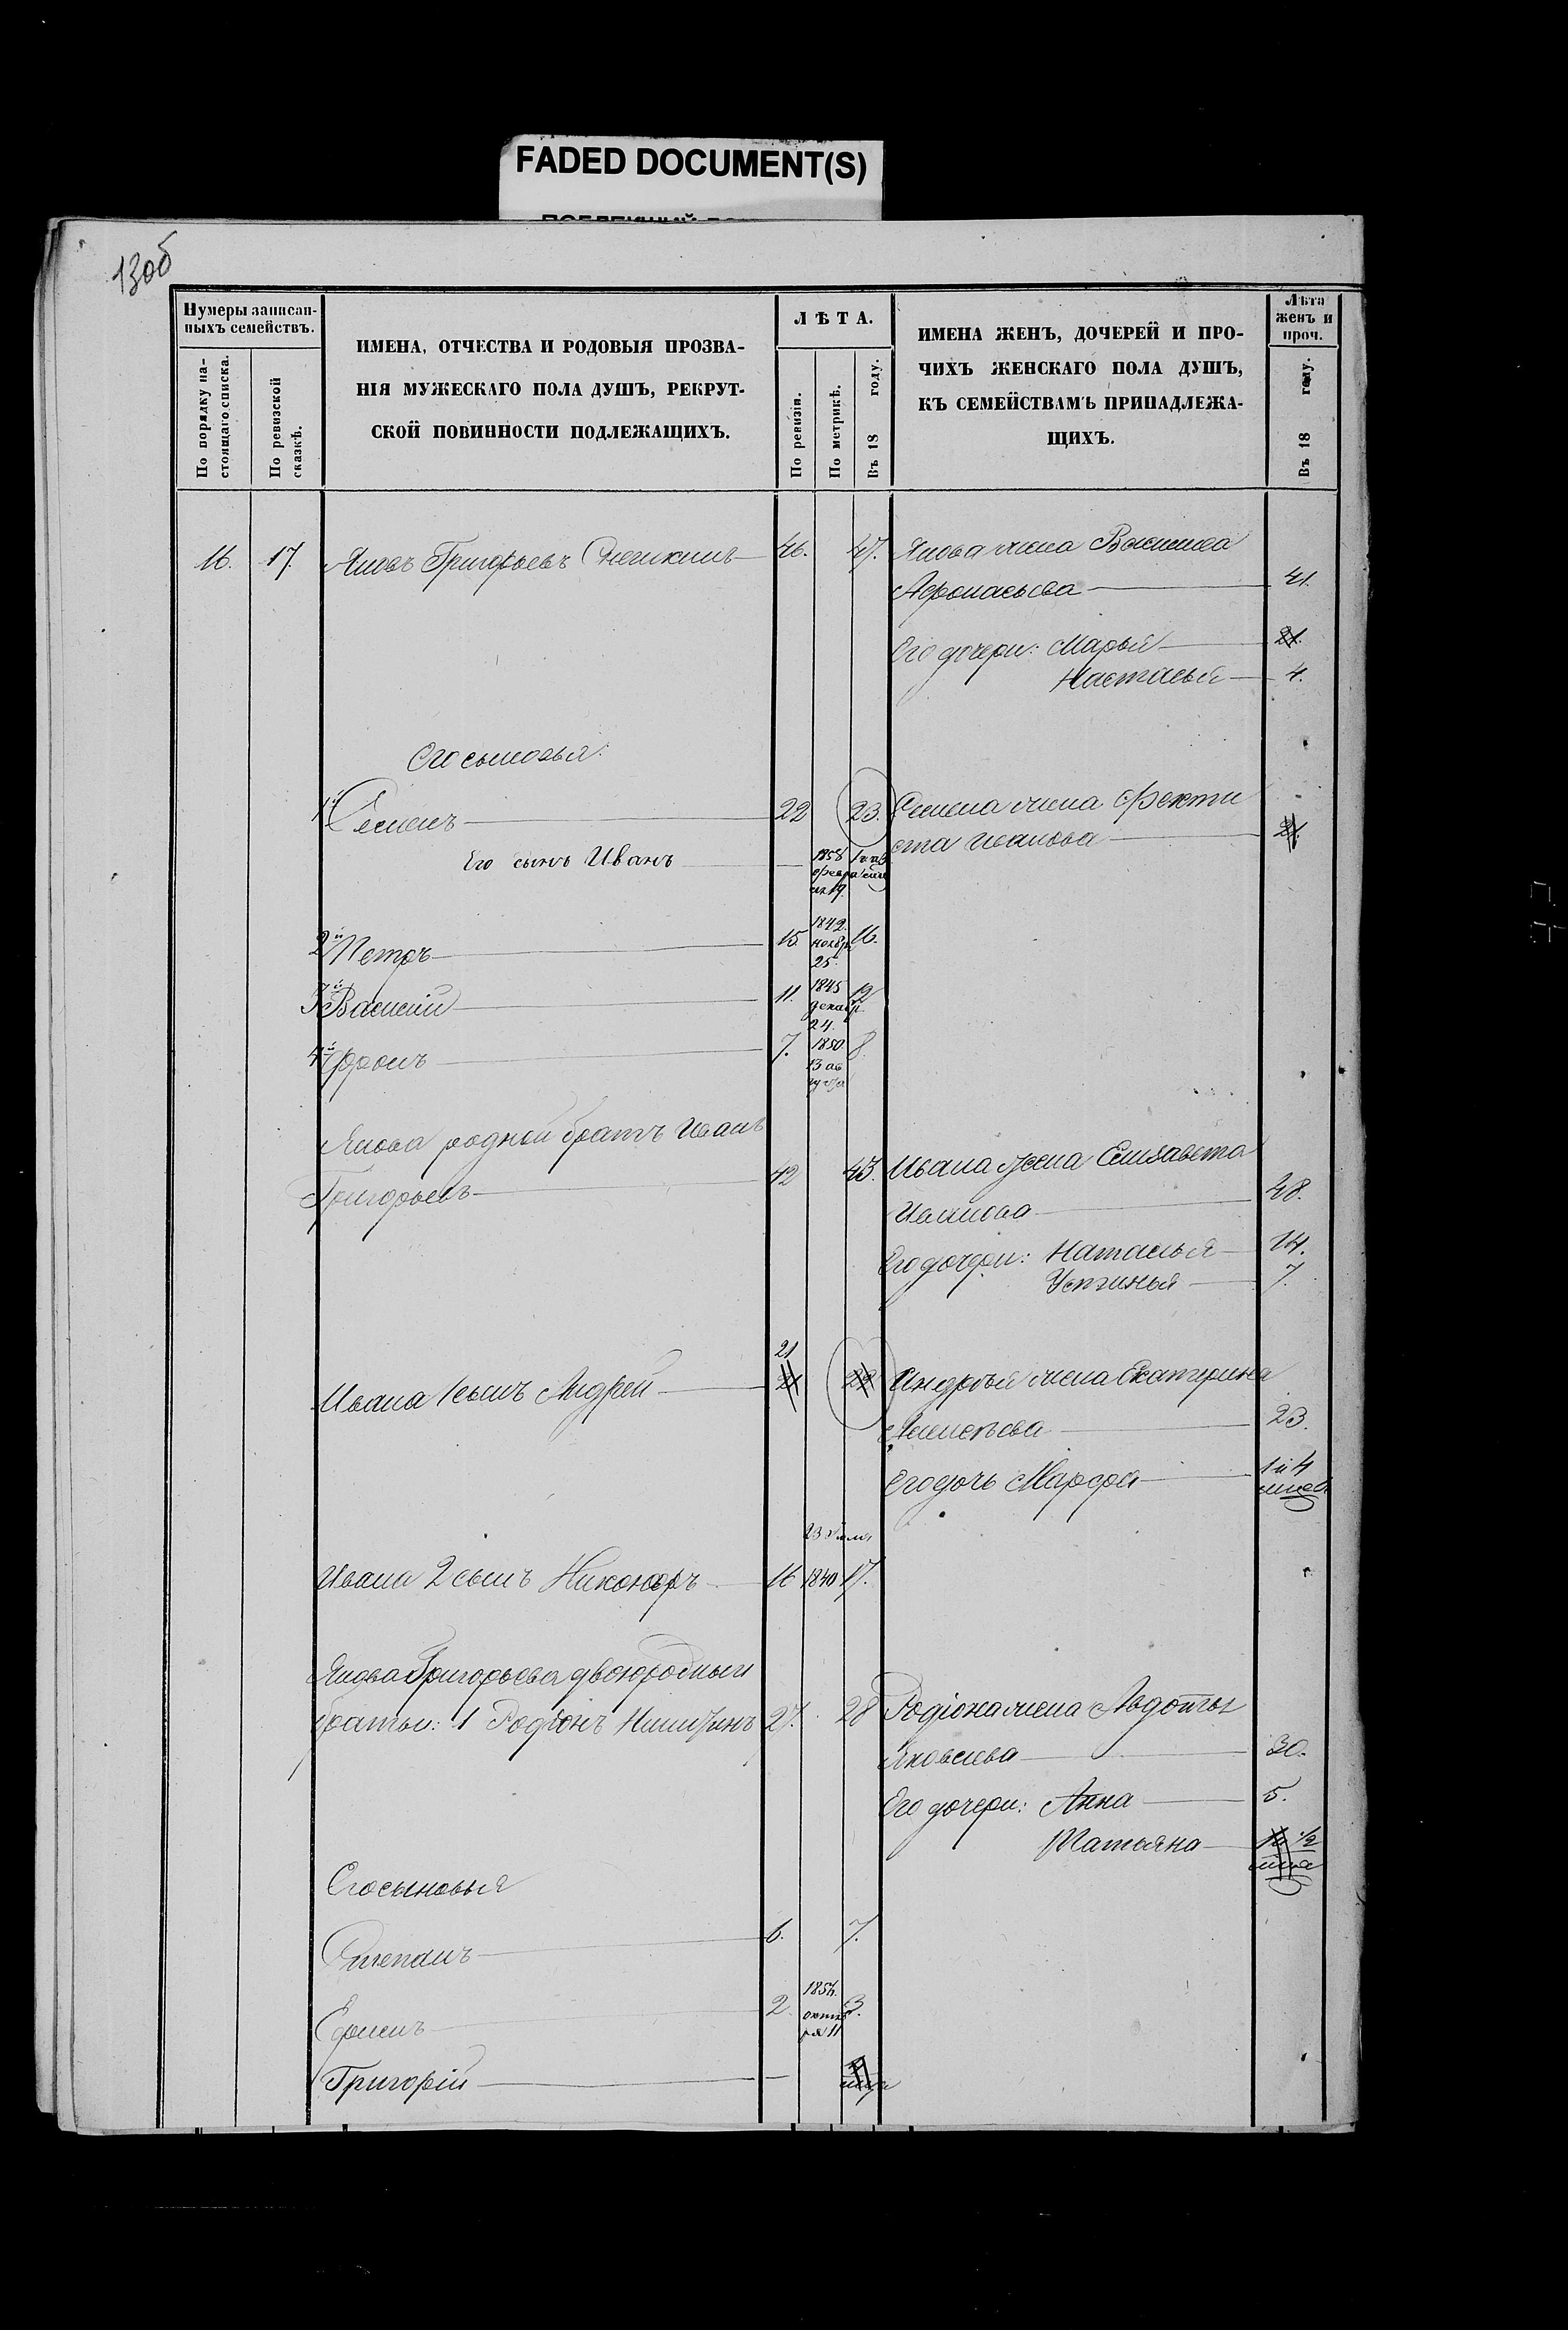 FADED DOCUMENT(S)
130б
Нумеры записан-
ныхъ семействъ.
По порядку на-
стоящаго списка.
По ревизской
сказкѣ.
ИМЕНА, ОТЧЕСТВА И РОДОВЫЯ ПРОЗВА-
НІЯ МУЖЕСКАГО ПОЛА ДУШЪ, РЕКРУТ-
СКОЙ ПОВИННОСТИ ПОДЛЕЖАЩИХЪ.
ЛѢТА.
По ревизіи.
По метрикѣ.
Въ 18 году.
ИМЕНА ЖЕНЪ, ДОЧЕРЕЙ И ПРО-
ЧИХЪ ЖЕНСКАГО ПОЛА ДУШЪ,
КЪ СЕМЕЙСТВАМЪ ПРИНАДЛЕЖА-
ЩИХЪ.
Лѣта
женъ и
проч.
Въ 18 году.
16. 17. Яковъ Григорьевъ 46. 47. Якова жена Василиса
Афонасьева 41.
Его дочери: Марья 21.
Настасья 4.
Его сыновья:
1й Семенъ 22 23. Семена жена Фекти
ста Иванова 21.
Его сынъ Иванъ — 1858
февра
ля 19.
2й Петръ 15. 1842. 16.
ноябр.
25.
3й Василій 11. 1845 12
декабр.
24.
4й Ефимъ 7. 1850 8
13 ав
густа
Якова родной братъ Иванъ
Григорьевъ 42 43. Ивана жена Елизавета
Иванова 48.
Его дочери: Наталья 14.
Устинья 7.
21
Ивана 1 сынъ Андрей 21 22 Андрея жена Екатерина
Алексѣева 23.
Его дочь Марфа 1 и 4
мѣсяц
Ивана 2 сынъ Никоноръ 16 1840 17.
Якова Григорьева двоюродныи
братья: 1 Родіонъ Никитинъ 27. 28 Родіона жена Авдотья
Яковлева 30.
Его дочери: Анна 5.
Татьяна 1/2
Его сыновья
Степанъ 6. 7.
Ефимъ 2. 1854. 3.
октяб
ря 11
Григорій —